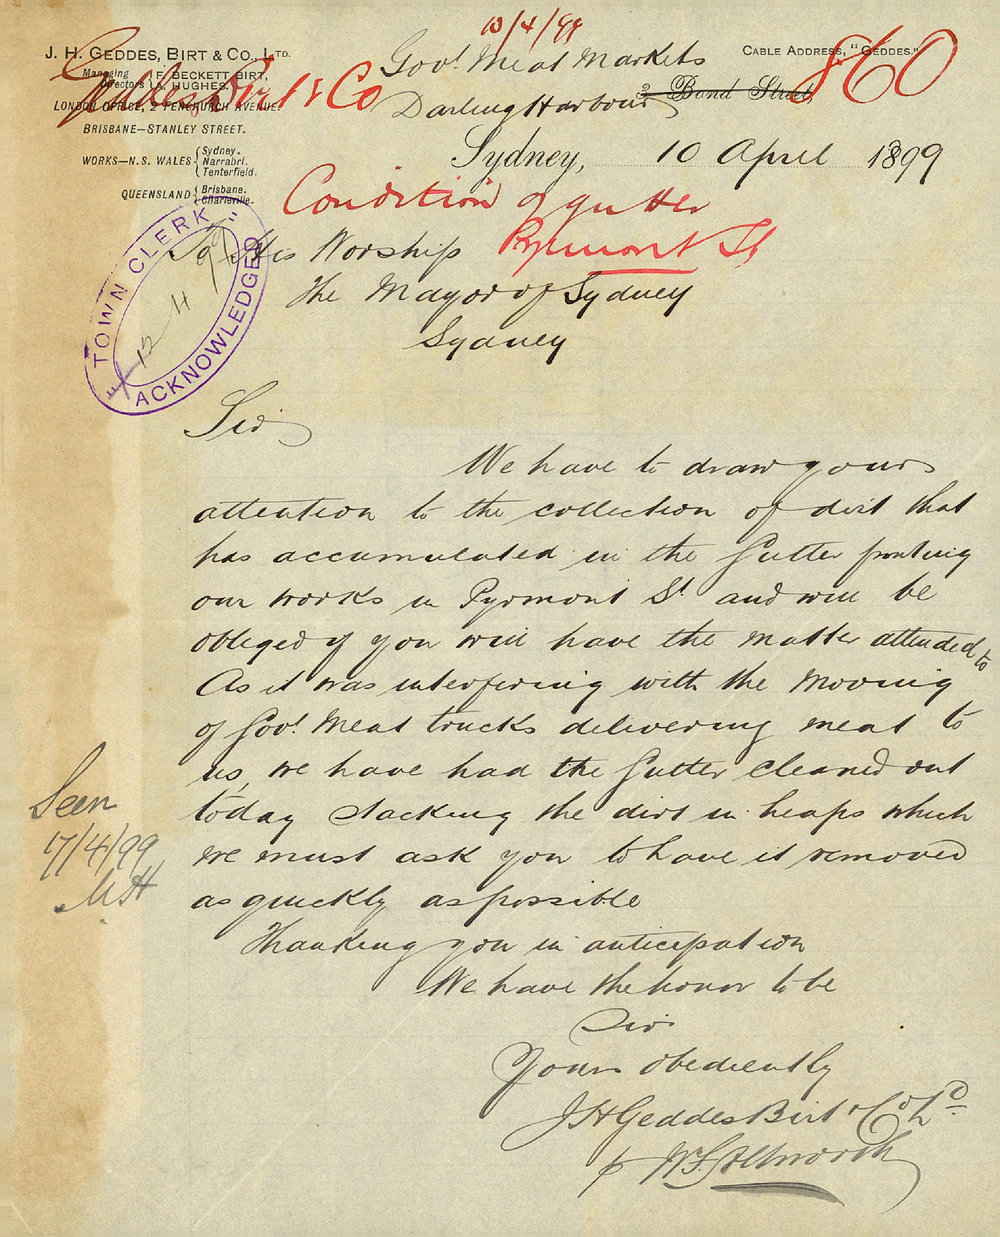 10/4/99
J. H. GEDDES, BIRT & CO., LTD.
Managing Directors { F. BECKETT BIRT, A. HUGHES.
LONDON OFFICE, 2 FENCHURCH AVENUE.
BRISBANE—STANLEY STREET.
WORKS—N.S. WALES { Sydney. Narrabri. Tenterfield.
QUEENSLAND { Brisbane. Charleville.
Geddes Birt & Co
Govt. Meat Markets
Darling Harbour
CABLE ADDRESS, "GEDDES."
2 Bond Street
860
Sydney, 10 April 1899
Condition of gutter
Pyrmont St
TOWN CLERK
12 4 99
ACKNOWLEDGED
His Worship
The Mayor of Sydney
Sydney
Sir
We have to draw yours
attention to the collection of dirt that
has accumulated in the Gutter fronting
our works in Pyrmont St and will be
obliged if you will have the matter attended to
As it was interfering with the moving
of Govt. Meat trucks delivering meat to
us, we have had the Gutter cleaned out
today stacking the dirt in heaps which
we must ask you to have it removed
as quickly as possible
Thanking you in anticipation
We have the honor to be
Sir
Yours obediently
J H Geddes Birt & Co Ld
p W S Allworth
Seen
17/4/99
MH